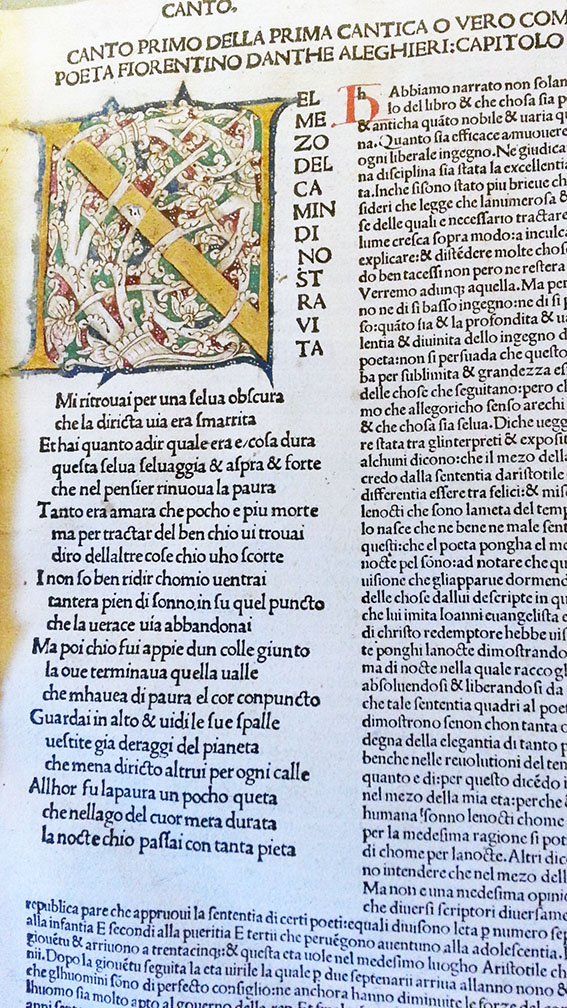 CANTO.
CANTO PRIMO DELLA PRIMA CANTICA O VERO COM
POETA FIORENTINO DANTHE ALEGHIERI:CAPITOLO
N
EL
ME
ZO
DEL
CA
MIN
DI
NO
ST
RA
VI
TA
Mi ritrouai per una ſelua obſcura
che la diricta uia era ſmarrita
Et hai quanto adir quale era e/coſa dura
queſta ſelua ſeluaggia & aſpra & forte
che nel penſier rinuoua la paura
Tanto era amara che pocho e piu morte
ma per tractar del ben chio ui trouai
diro dellaltre coſe chio uho ſcorte
I non ſo ben ridir chomio uentrai
tantera pien di ſonno,in ſu quel puncto
che la uerace uia abbandonai
Ma poi chio fui appie dun colle giunto
la oue terminaua quella ualle
che mhauea di paura el cor conpuncto
Guardai in alto & uidi le ſue ſpalle
ueſtite gia deraggi del pianeta
che mena diricto altrui per ogni calle
Allhor fu lapaura un pocho queta
che nellago del cuor mera durata
la nocte chio paſſai con tanta pieta
h Abbiamo narrato non ſolan
lo del libro & che choſa ſia p
& anticha quãto nobile & uaria qu
na.Quanto ſia efficace amuouere
ogni liberale ingegno.Ne giudica
na diſciplina ſia ſtata la excellentia
ta.Inche ſiſono ſtato piu brieue ch
ſideri che legge che lanumeroſa &
ſe delle quali e neceſſario tractare
lume creſca ſopra modo:a inculca
explicare:& diſtẽdere molte choſe
do ben taceſſi non pero ne reſtera
Verremo adunqȝ aquella.Ma per
no ne di ſi baſſo ingegno:ne di ſi p
ſo:quãto ſia & la profondita & ua
lentia & diuinita dello ingegno d
poeta:non ſi perſuada che queſto
ba per ſublimita & grandezza eſ
delle choſe che ſeguitano:pero ch
mo che allegoricho ſenſo arechi
& che choſa ſia ſelua.Diche uegg
re ſtata tra glinterpreti & expoſit
alchuni dicono:che il mezo della
credo dalla ſententia dariſtotile
differentia eſſere tra felici:& miſe
lenocti che ſono lameta del temp
lo naſce che ne bene ne male ſent
queſti:che el poeta pongha el me
nocte pel ſõno:ad notare che qu
uiſione che gliapparue dormend
delle choſe dallui deſcripte in qu
che lui imita Ioanni euangeliſta e
di chriſto redemptore hebbe uiſ
te ponghi lanocte dimoſtrando
ma di nocte nella quale raccogl
abſoluendoſi & liberandoſi da
che tale ſententia quadri al poet
dimoſtrono ſenon chon tanta o
degna della elegantia di tanto p
benche nelle reuolutioni del ten
quanto e di:per queſto dicẽdo i
nel mezo della mia eta:perche &
humana !ſonno lenocti chome
per la medeſima ragione ſi pot
di chome per lanocte.Altri dice
no intendere che nel mezo dell
Ma non e una medeſima opinio
che diuerſi ſcriptori diuerſame
republica pare che appruoui la ſententia di certi poeti:equali diuiſono leta p numero ſep
alla infantia E ſecondi alla pueritia E tertii che peruẽgono auentuno alla adoleſcentia.I
giouẽtu & arriuono a trentacinqȝ:& queſta eta uole nel medeſimo luogho Ariſtotile ch
nii.Dopo la giouẽtu ſeguita la eta uirile la quale p due ſeptenarii arriua allanno nono &
che glhuomini ſono di perfecto conſiglio:ne anchora hãno diminuite le forze del co
lhuomo ſia molto apto al gouerno della